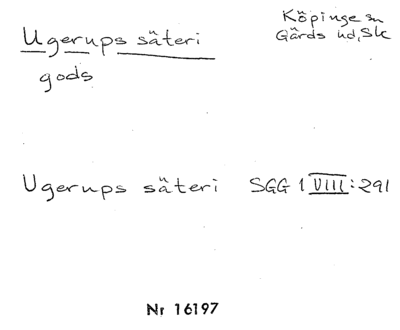 Ugerups säteri
Köpinge sn
Gärds hd, Sk
gods
Ugerups säteri SGG 1 VIII:291
Nr 16197